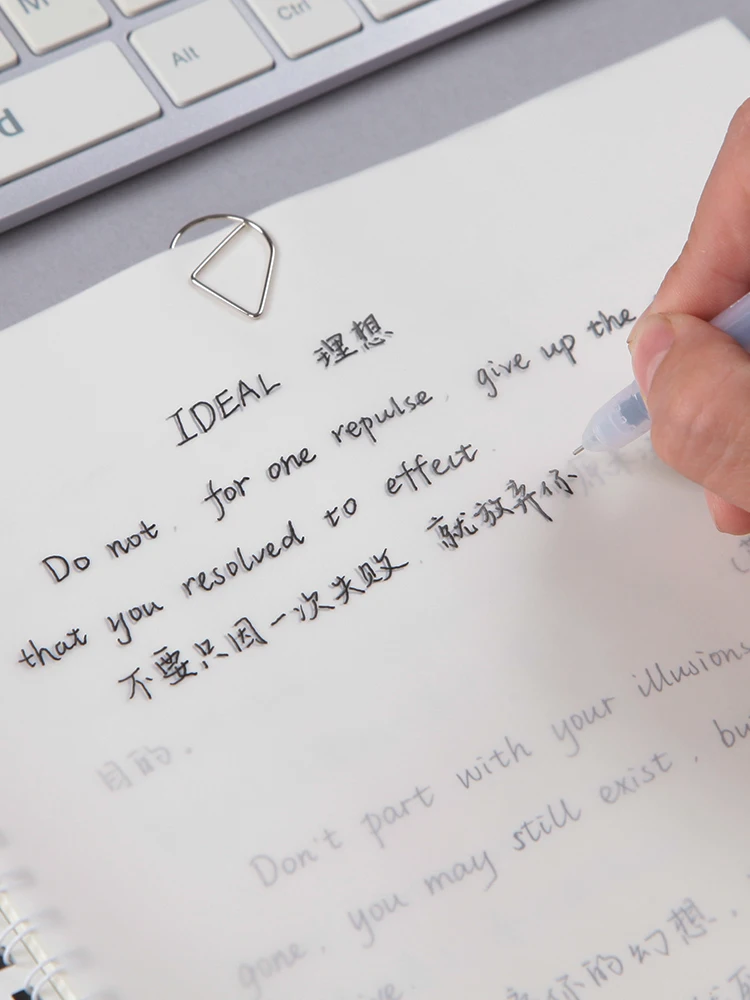 M
Alt
Ctrl
IDEAL 理想
Do not, for one repulse, give up the
that you resolved to effect.
不要只因一次失败,就放弃你
目的.
Don't part with your illusions
gone, you may still exist, but
你的幻想,